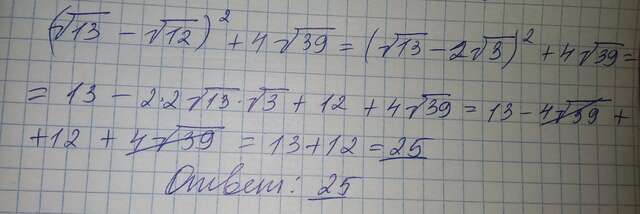 (√13 - √12)² + 4√39 = (√13 - 2√3)² + 4√39 =
= 13 - 2·2√13·√3 + 12 + 4√39 = 13 - 4√39 +
+12 + 4√39 = 13+12 = 25
Ответ: 25